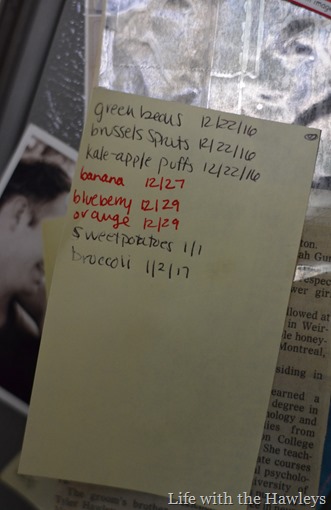 green beans 12/22/16
brussels spruts 12/22/16
kale-apple puffs 12/22/16
banana 12/27
blueberry 12/29
orange 12/29
sweetpotatoes 1/1
broccoli 1/2/17
ton.
ah Gun
respec
wer gir
llowed at
in Weir-
le honey-
Montreal,
siding in
earned a
degree in
hology and
ies from
n College
She teach-
ate courses
d psycholo-
iversity of
The groom's brothe
Life with the Hawleys